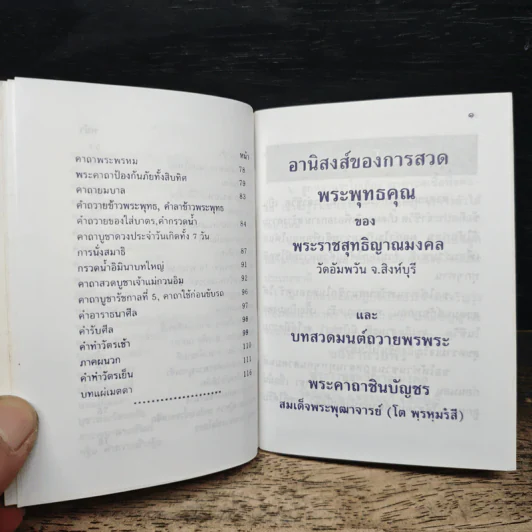 หน้า
คาถาพระพรหม 78
พระคาถาป้องกันภัยทั้งสิบทิศ 78
คาถายมบาล 83
คำถวายข้าวพระพุทธ, คำลาข้าวพระพุทธ
คำถวายของใส่บาตร, คำกรวดน้ำ 84
คาถาบูชาดวงประจำวันเกิดทั้ง 7 วัน
การนั่งสมาธิ 87
กรวดน้ำอิมินาบทใหญ่ 91
คาถาสวดบูชาเจ้าแม่กวนอิม 92
คาถาบูชารัชกาลที่ 5, คาถาใช้ก่อนขับรถ 96
คำอาราธนาศีล 92
คำรับศีล 94
คำทำวัตรเช้า 100
ภาคผนวก 110
คำทำวัตรเย็น 111
บทแม่เมตตา 116
๑
อานิสงส์ของการสวด
พระพุทธคุณ
ของ
พระราชสุทธิญาณมงคล
วัดอัมพวัน จ.สิงห์บุรี
และ
บทสวดมนต์ถวายพรพระ
พระคาถาชินบัญชร
สมเด็จพระพุฒาจารย์ (โต พฺรหฺมรํสี)